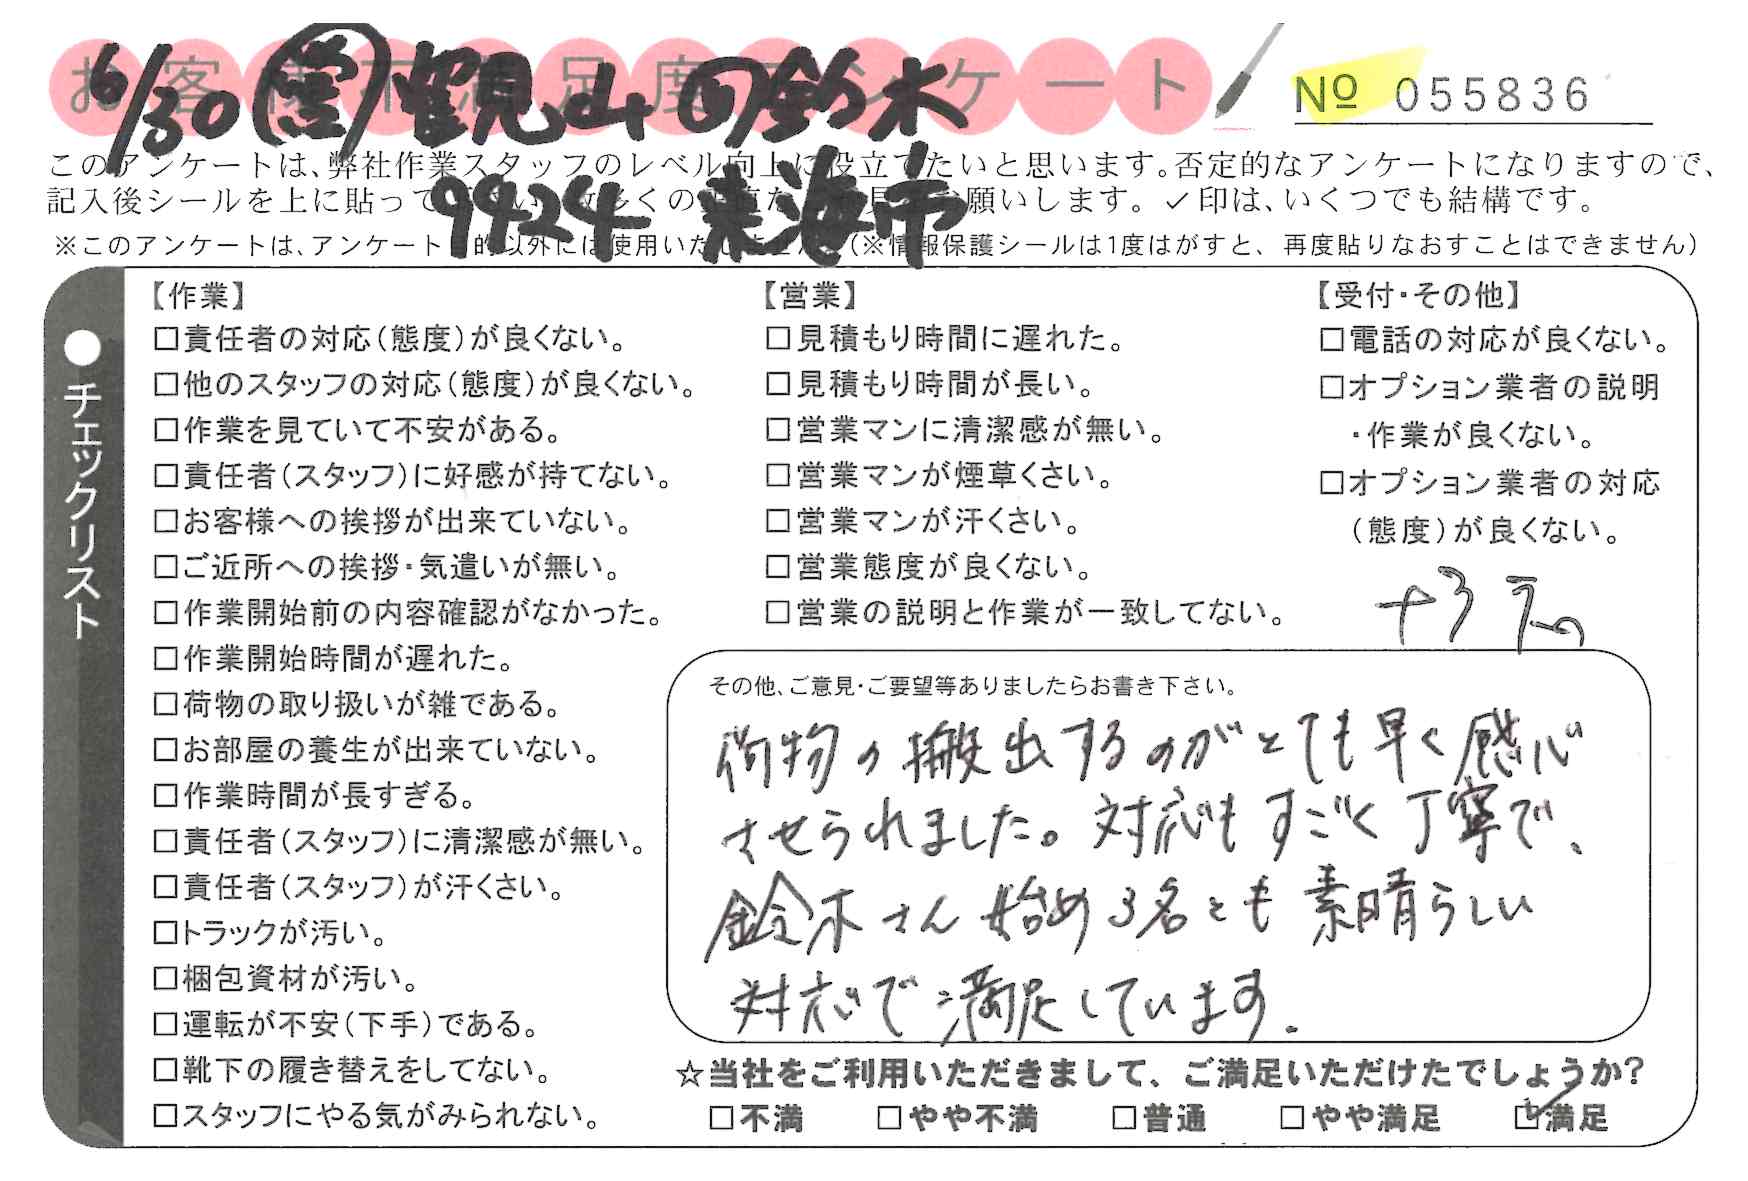 お客様不満足度アンケート
№ 055836
6/30 (営) 鶴見山 回 鈴木
9424 東海市
このアンケートは、弊社作業スタッフのレベル向上に役立てたいと思います。否定的なアンケートになりますので、
記入後シールを上に貼って
願いします。✓印は、いくつでも結構です。
※このアンケートは、アンケート目的以外には使用いたしません。(※情報保護シールは1度はがすと、再度貼りなおすことはできません)
●チェックリスト
【作業】
□責任者の対応(態度)が良くない。
□他のスタッフの対応(態度)が良くない。
□作業を見ていて不安がある。
□責任者(スタッフ)に好感が持てない。
□お客様への挨拶が出来ていない。
□ご近所への挨拶・気遣いが無い。
□作業開始前の内容確認がなかった。
□作業開始時間が遅れた。
□荷物の取り扱いが雑である。
□お部屋の養生が出来ていない。
□作業時間が長すぎる。
□責任者(スタッフ)に清潔感が無い。
□責任者(スタッフ)が汗くさい。
□トラックが汚い。
□梱包資材が汚い。
□運転が不安(下手)である。
□靴下の履き替えをしてない。
□スタッフにやる気がみられない。
【営業】
□見積もり時間に遅れた。
□見積もり時間が長い。
□営業マンに清潔感が無い。
□営業マンが煙草くさい。
□営業マンが汗くさい。
□営業態度が良くない。
□営業の説明と作業が一致してない。
【受付・その他】
□電話の対応が良くない。
□オプション業者の説明
・作業が良くない。
□オプション業者の対応
(態度)が良くない。
その他、ご意見・ご要望等ありましたらお書き下さい。
荷物の搬出するのがとても早く感心
させられました。対応もすごく丁寧で、
鈴木さん始め3名とも素晴らしい
対応で満足しています.
☆当社をご利用いただきまして、ご満足いただけたでしょうか?
□不満 □やや不満 □普通 □やや満足 ☑満足